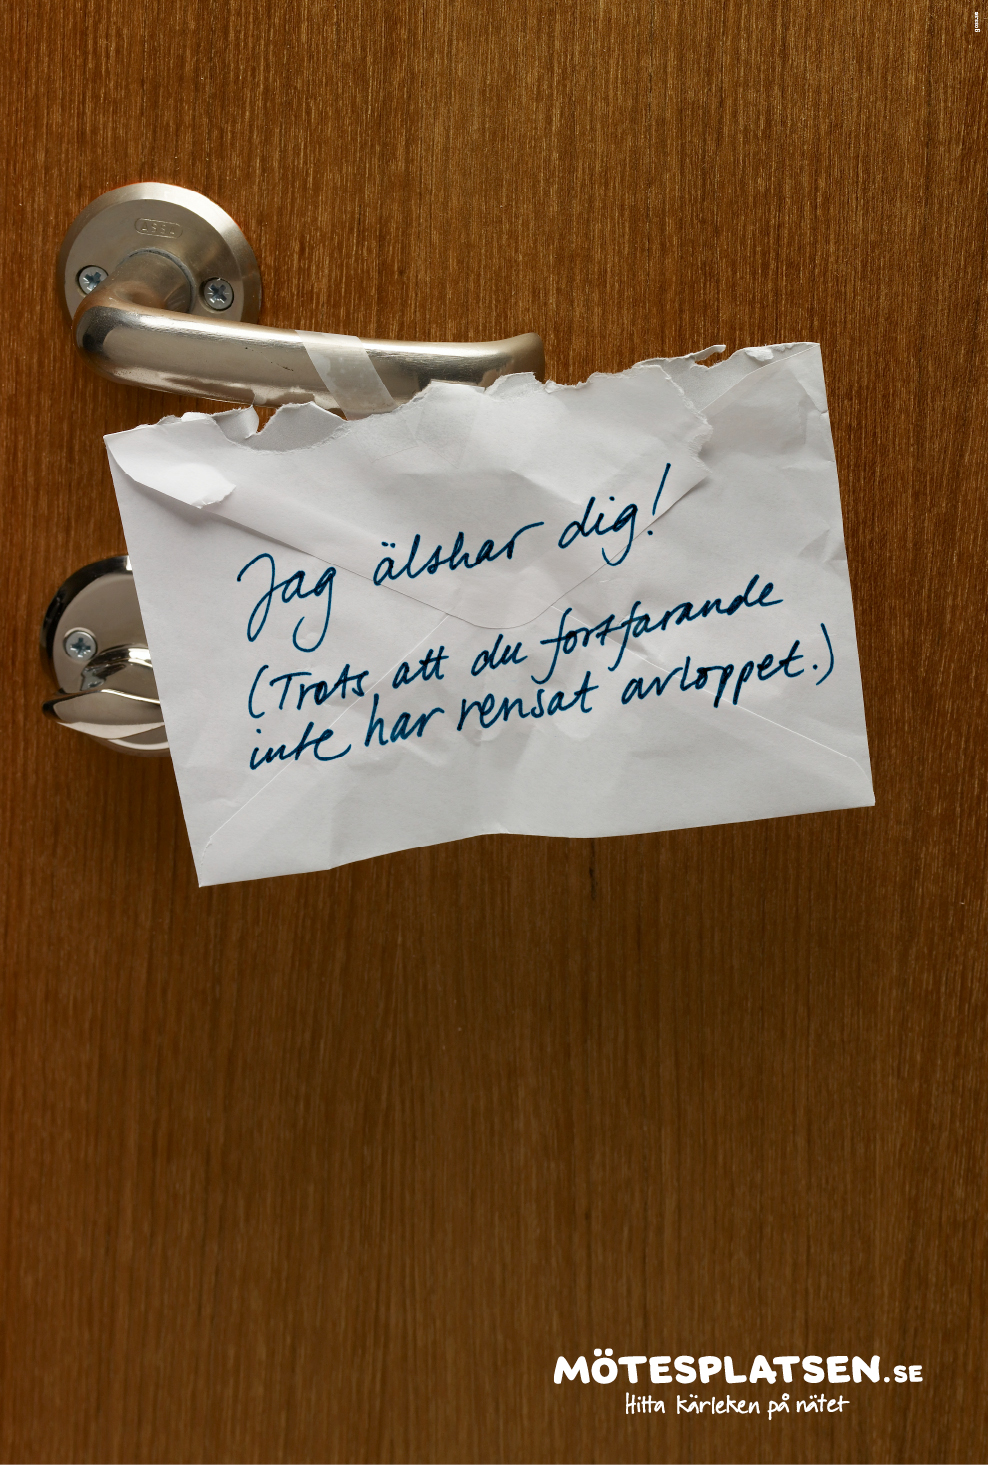 Jag älskar dig!
(Trots att du fortfarande
inte har rensat avloppet.)
MÖTESPLATSEN.SE
Hitta kärleken på nätet